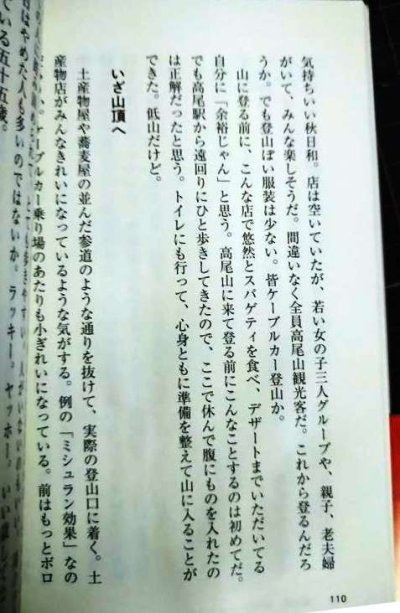 気持ちいい秋日和。店は空いていたが、若い女の子三人グループや、親子、老夫婦
がいて、みんな楽しそうだ。間違いなく全員高尾山観光客だ。これから登るんだろ
うか。でも登山ぽい服装は少ない。皆ケーブルカー登山か。
山に登る前に、こんな店で悠然とスパゲティを食べ、デザートまでいただいてる
自分に「余裕じゃん」と思う。高尾山に来て登る前にこんなことするのは初めてだ。
でも高尾駅から遠回りにひと歩きしてきたので、ここで休んで腹にものを入れたの
は正解だったと思う。トイレにも行って、心身ともに準備を整えて山に入ることが
できた。低山だけど。
いざ山頂へ
土産物屋や蕎麦屋の並んだ参道のような通りを抜けて、実際の登山口に着く。土
産物店がみんなきれいになっているような気がする。例の「ミシュラン効果」なの
ケーブルカー乗り場のあたりも小ぎれいになっている。前はもっとボロ
はやめた人も多いのではないか。ラッキー。ヤッホー。
ている五十五歳。
110